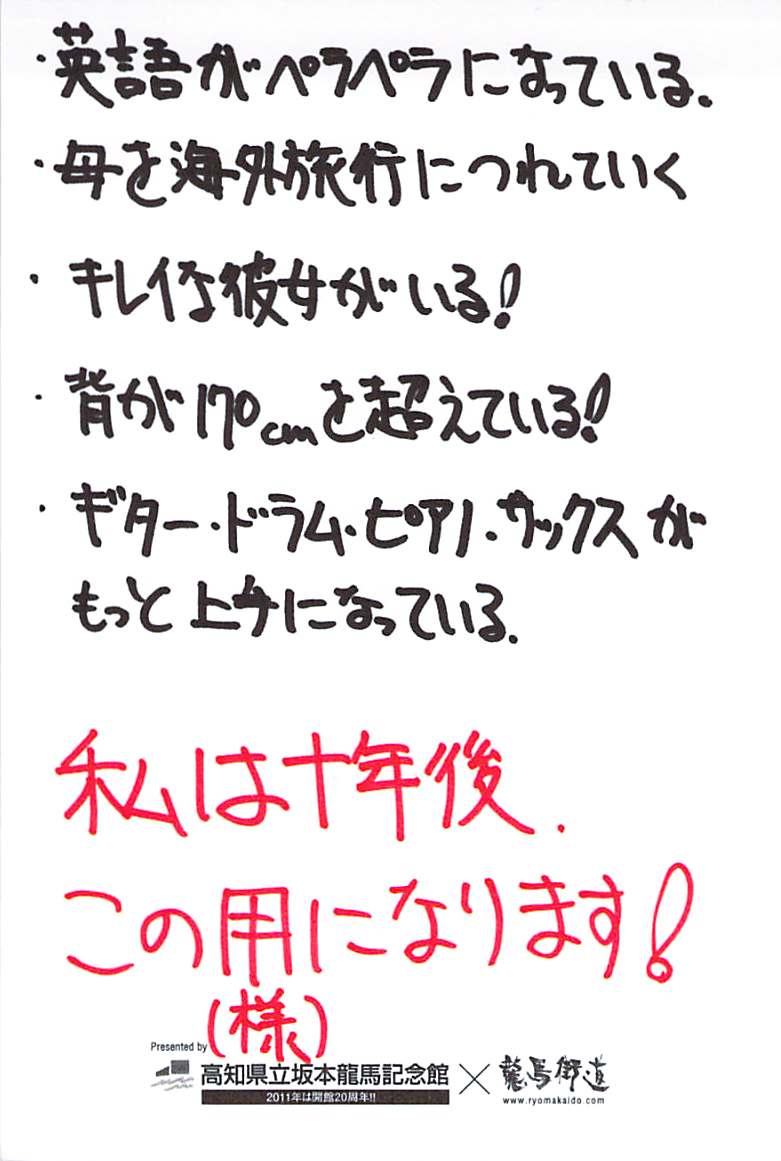 ・英語がペラペラになっている.
・母を海外旅行につれていく
・キレイな彼女がいる!
・背が170cmを超えている!
・ギター・ドラム・ピアノ・サックスが
もっと上手になっている.
私は十年後.
この用になります!
(様)
Presented by
高知県立坂本龍馬記念館
2011年は開館20周年!!
×
龍馬街道
www.ryomakaido.com